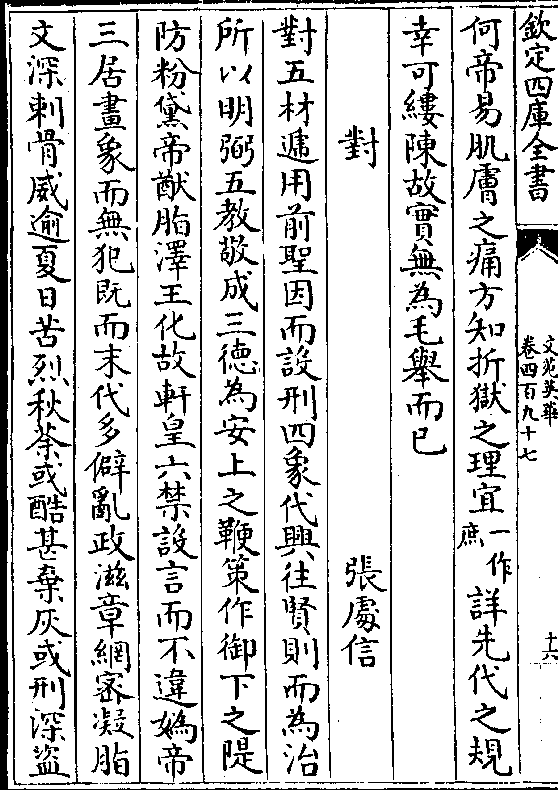 欽定四庫全書
文苑英華
卷四百九十七
十六
何帝易肌膚之痛方知折獄之理宜一作庶詳先代之規
幸可縷陳故實無為毛舉而已
對
張處信
對五材遞用前聖因而設刑四象代興往賢則而為治
所以明弼五教敬成三德為安上之鞭策作御下之隄
防粉黛帝猷脂澤王化故軒皇六禁設言而不違媯帝
三居畫象而無犯既而末代多僻亂政滋章網密凝脂
文深刺骨威逾夏日苦烈秋荼或酷甚棄灰或刑深盜